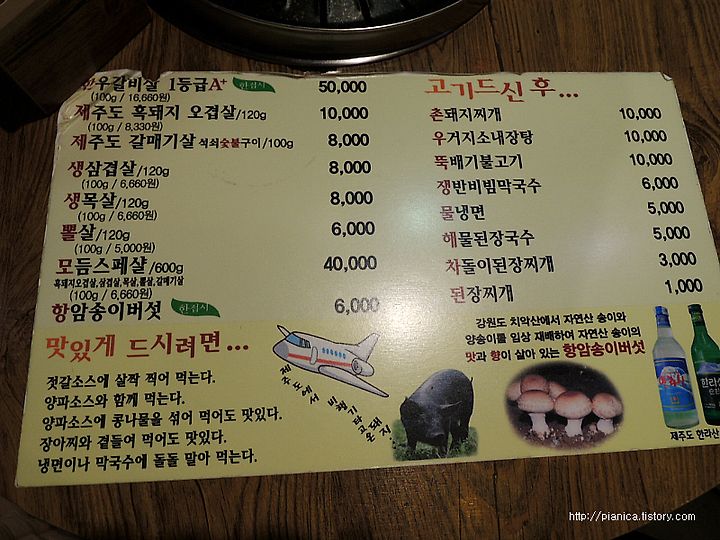 한우갈비살 1등급A+ 한접시 50,000
(100g / 16,660원)
제주도 흑돼지 오겹살/120g 10,000
(100g / 8,330원)
제주도 갈매기살 석쇠숯불구이/100g 8,000
생삼겹살/120g 8,000
(100g / 6,660원)
생목살/120g 8,000
(100g / 6,660원)
뽈살/120g 6,000
(100g / 5,000원)
모듬스페샬/600g 40,000
흑돼지오겹살,삼겹살,목살,뽈살,갈매기살
(100g / 6,660원)
항암송이버섯 한접시 6,000
고기드신 후...
촌돼지찌개 10,000
우거지소내장탕 10,000
뚝배기불고기 10,000
쟁반비빔막국수 6,000
물냉면 5,000
해물된장국수 5,000
차돌이된장찌개 3,000
된장찌개 1,000
맛있게 드시려면...
젓갈소스에 살짝 찍어 먹는다.
양파소스와 함께 먹는다.
양파소스에 콩나물을 섞어 먹어도 맛있다.
장아찌와 곁들어 먹어도 맛있다.
냉면이나 막국수에 돌돌 말아 먹는다.
제주도에서 비행기타고온 돼지
강원도 치악산에서 자연산 송이와
양송이를 임상 재배하여 자연산 송이의
맛과 향이 살아 있는 항암송이버섯
한라산
제주도 한라산
http://pianica.tistory.com